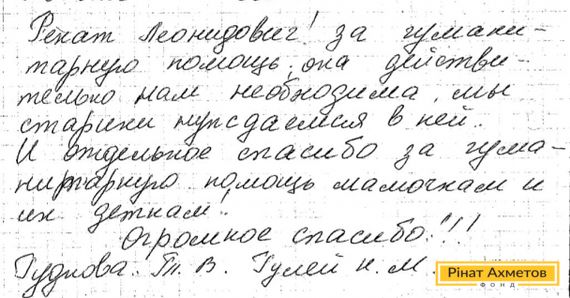 Ренат Леонидович! за гумани-
тарную помощь, она действи-
тельно нам необходима, мы
старики нуждаемся в ней.
И отдельное спасибо за гума-
нитарную помощь мамочкам и
их деткам!
Огромное спасибо!!!
Гуднова. Т. В. Гулей Н. М.
Рінат Ахметов
ФОНД